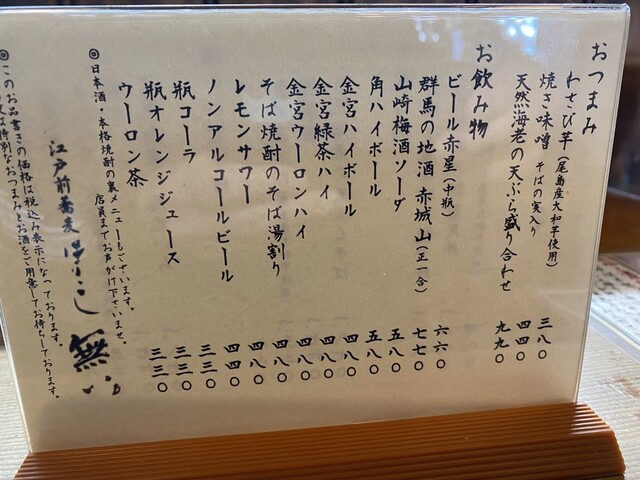 おつまみ
わさび芋(尾島産大和芋使用) 三八〇
焼き味噌 そばの実入り 四四〇
天然海老の天ぷら盛り合わせ 九九〇
お飲み物
ビール赤星(中瓶) 六六〇
群馬の地酒 赤城山(正一合) 七七〇
山崎梅酒ソーダ 五八〇
角ハイボール 五八〇
金宮ハイボール 四八〇
金宮緑茶ハイ 四八〇
金宮ウーロンハイ 四八〇
そば焼酎のそば湯割り 四八〇
レモンサワー 四八〇
ノンアルコールビール 四四〇
瓶コーラ 三三〇
瓶オレンジジュース 三三〇
ウーロン茶 三三〇
◎日本酒・本格焼酎の裏メニューもございます。
店員までお声がけ下さいませ。
江戸前蕎麦 無
◎このお品書きの価格は税込み表示になっております。
は特別なおつまみとお酒をご用意してお待ちしております。